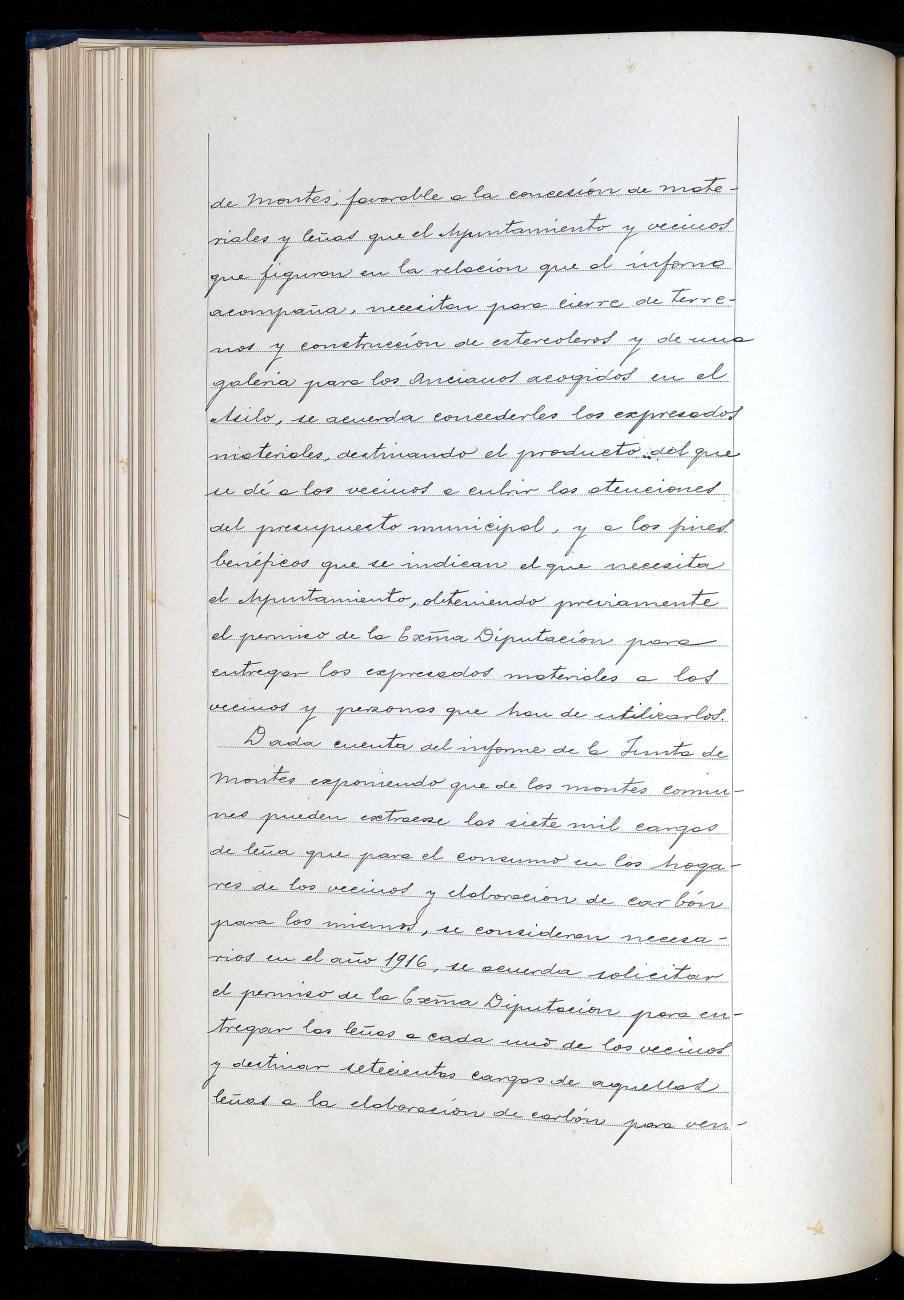 de Montes, favorable a la concesión de mate-
riales y leñas que el Ayuntamiento y vecinos
que figuran en la relación que al informe
acompaña, necesitan para cierre de terre-
nos y construcción de estercoleros y de una
galeria para los Ancianos acogidos en el
Asilo, se acuerda concederles los expresados
materiales, destinando el producto del que
se dé a los vecinos a cubrir las atenciones
del presupuesto municipal, y a los fines
benéficos que se indican el que necesita
el Ayuntamiento, obteniendo previamente
el permiso de la Exma Diputación para
entregar los expresados materiales a los
vecinos y personas que han de utilizarlos.
Dada cuenta del informe de la Junta de
Montes exponiendo que de los montes comu-
nes pueden extraerse las siete mil cargas
de leña que para el consumo en los hoga-
res de los vecinos y elaboracion de carbón
para los mismos, se consideran necesa-
rios en el año 1916, se acuerda solicitar
el permiso de la Exma Diputación para en-
tregar las leñas a cada uno de los vecinos
y destinar setecientas cargas de aquellas
leñas a la elaboración de carbón para ven-